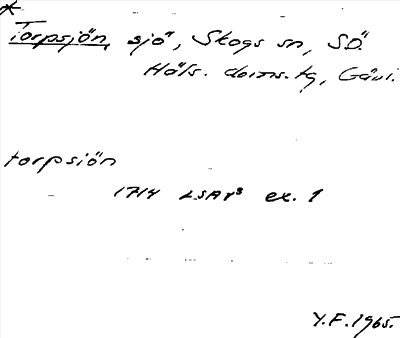 *
Torpsjön, sjö, Skogs sn, SÖ.
Häls. doms.tg, Gävl.
torpsiön
1714 LSA Y³ ex. 1
Y.F. 1965.